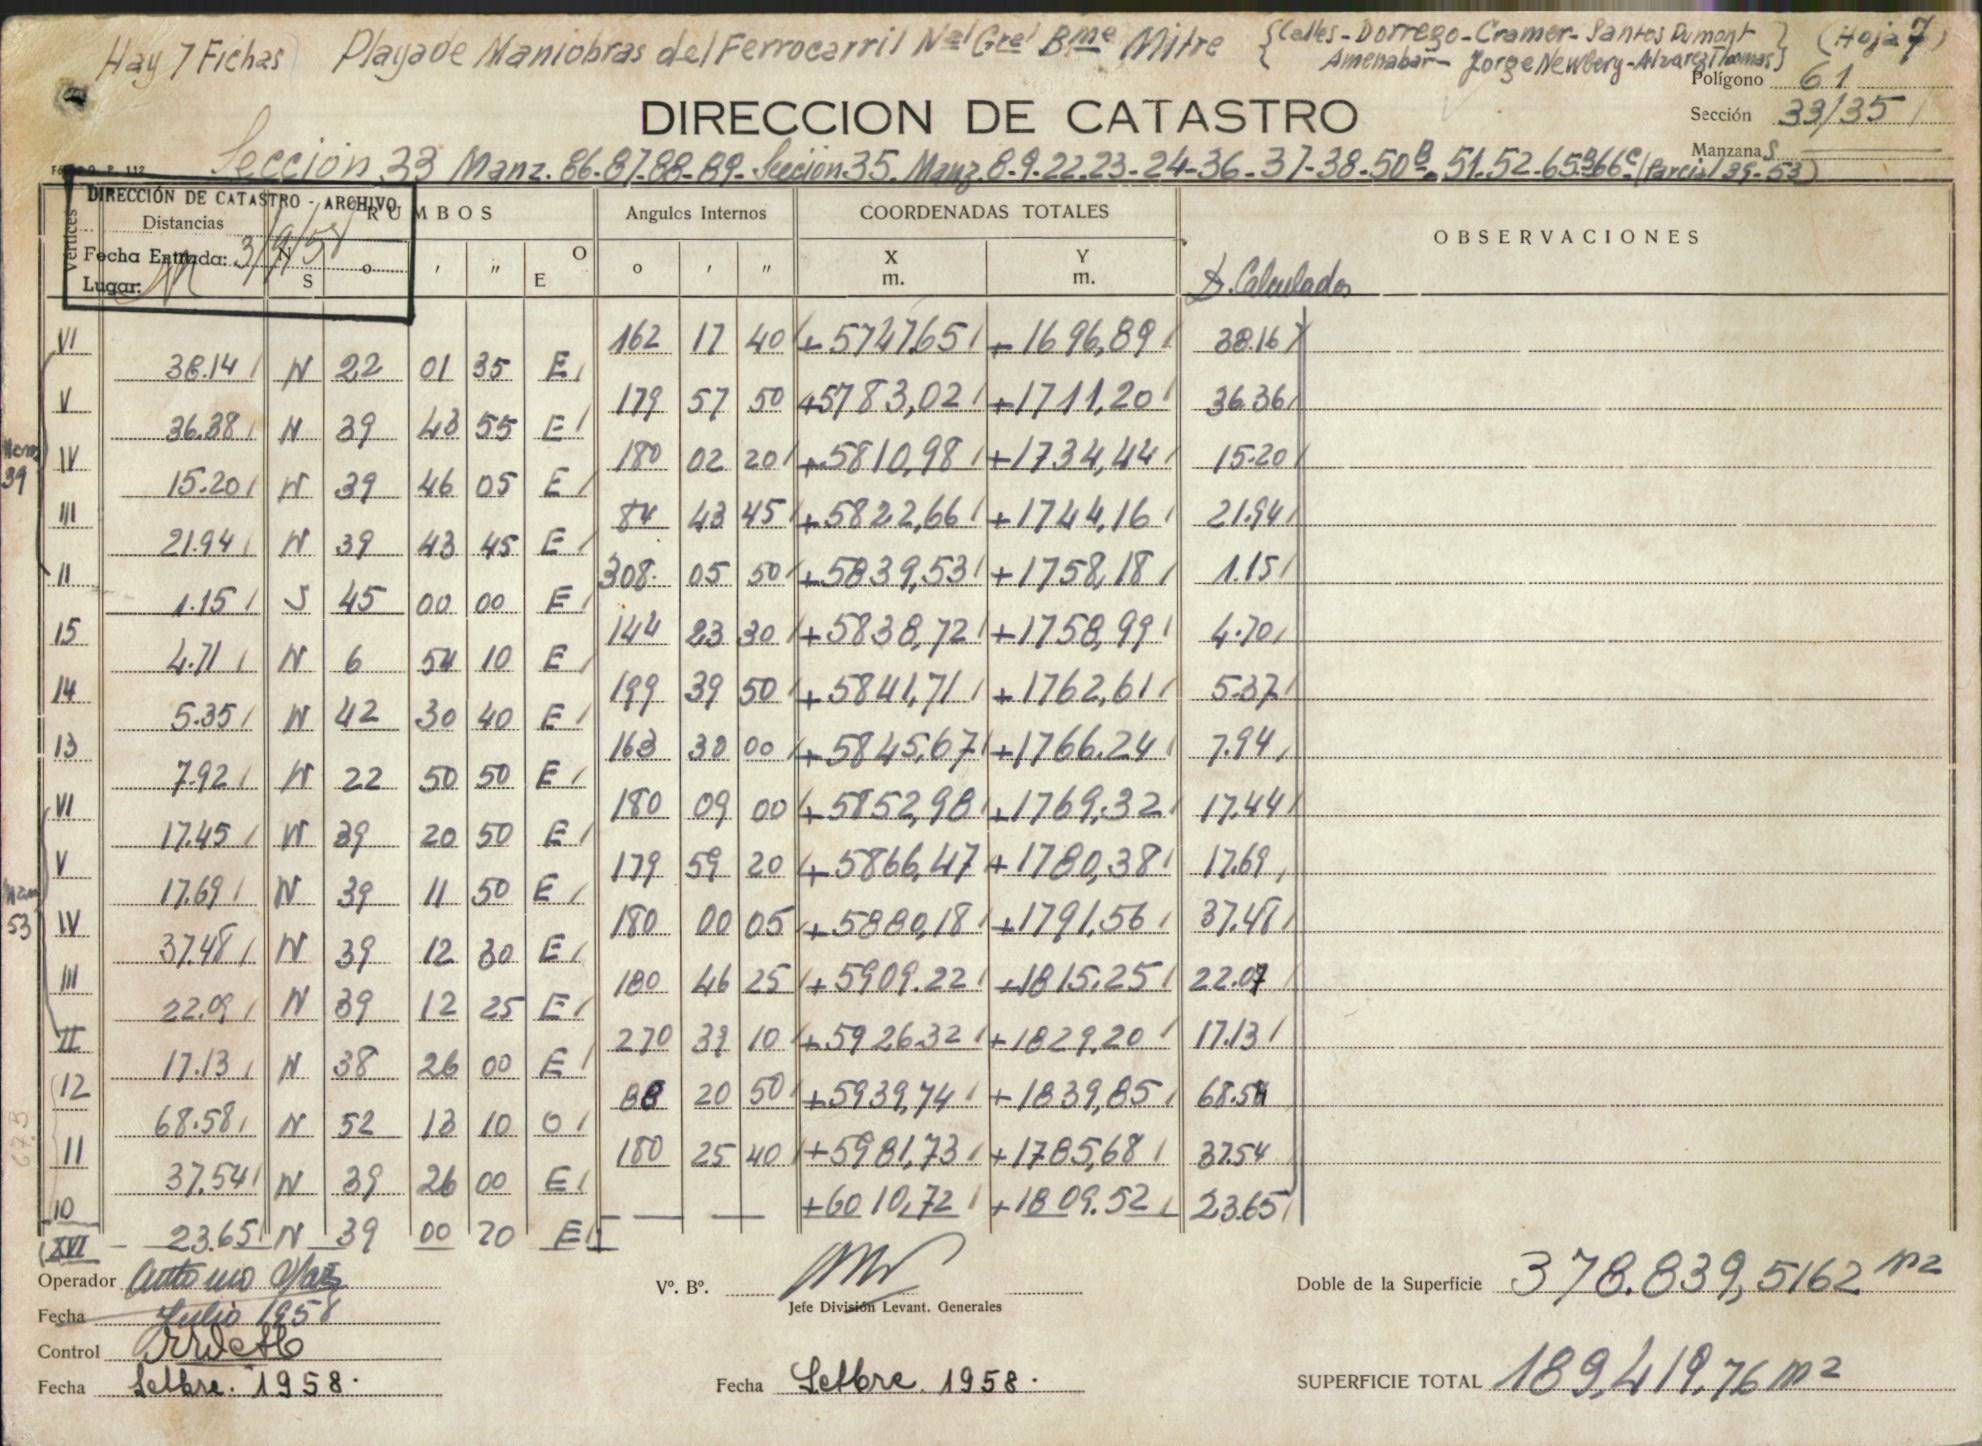 Hay 7 Fichas Playa de Maniobras del Ferrocarril Nal Gral Bme Mitre {Calles-Dorrego-Cramer-Santos Dumont} (Hoja 7)
Amenabar- Jorge Newbery-Alvarez Thomas}
Polígono 61
DIRECCION DE CATASTRO
Sección 33/35
Manzanas
Sección 33 Manz. 86-87-88-89-Sección 35. Manz. 8-9-22-23-24-36-37-38-50B-51-52-65B-66C (Parcial 39-53)
DIRECCIÓN DE CATASTRO - ARCHIVO
Fecha Entrada: 3/9/58
Lugar:
Vértices Distancias RUMBOS Angulos Internos COORDENADAS TOTALES OBSERVACIONES
N S o ' " O E o ' " X m. Y m. D. Calculados
VI 162 17 40 +5747,65 +1696,89 38.16
38.14 N 22 01 35 E
V 179 57 50 +5783,02 +1711,20 36.36
36.38 N 39 43 55 E
Manz 39
IV 180 02 20 +5810,98 +1734,44 15.20
15.20 N 39 46 05 E
III 84 43 45 +5822,66 +1744,16 21.94
21.94 N 39 43 45 E
II 308 05 50 +5839,53 +1758,18 1.15
1.15 S 45 00 00 E
15 144 23 30 +5838,72 +1758,99 4.70
4.71 N 6 54 10 E
14 199 39 50 +5841,71 +1762,61 5.37
5.35 N 42 30 40 E
13 163 30 00 +5845,67 +1766.24 7.94
7.92 N 22 50 50 E
VI 180 09 00 +5852,98 +1769,32 17.44
17.45 N 39 20 50 E
V 179 59 20 +5866,47 +1780,38 17.69
17.69 N 39 11 50 E
Manz 53
IV 180 00 05 +5880,18 +1791,56 37.48
37.48 N 39 12 30 E
III 180 46 25 +5909.22 +1815.25 22.07
22.09 N 39 12 25 E
II 270 39 10 +5926.32 +1829,20 17.13
17.13 N 38 26 00 E
12 88 20 50 +5939,74 +1839,85 68.54
68.58 N 52 13 10 O
11 180 25 40 +5981,73 +1785,68 37.54
37.54 N 39 26 00 E
10 +6010,72 +1809.52 23.65
23.65 N 39 00 20 E
(XVI
Operador Antonio
Fecha Julio 1958
Control
Fecha Setbre. 1958.
Vº. Bº.
Jefe División Levant. Generales
Fecha Setbre. 1958.
Doble de la Superficie 378.839,5162 m2
SUPERFICIE TOTAL 189,419,76 m2